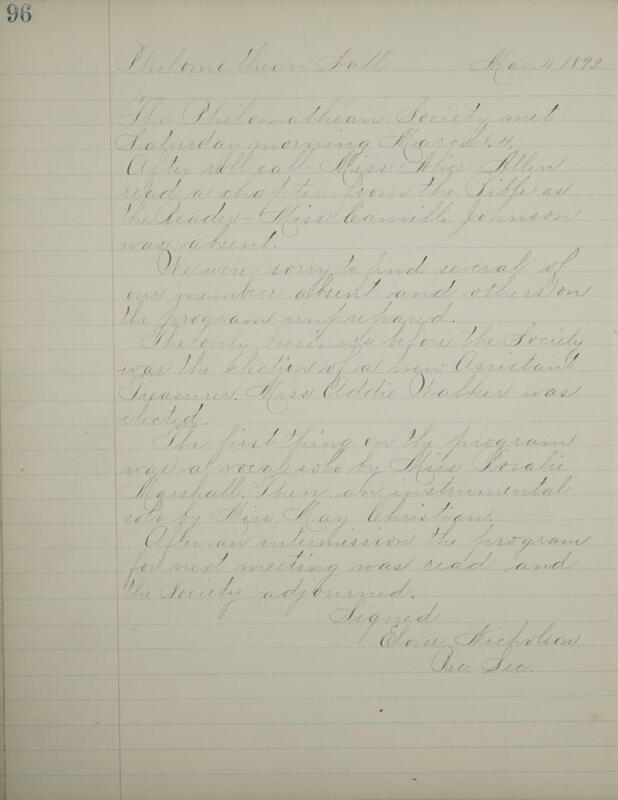 96
Philomathean Hall Mar. 4, 1893
The Philomathean Society met
Saturday morning March. 4.
After roll call Miss Alice Allen
read a chapter from the Bible as
the Reader - Miss Camille Johnson
was absent.
We were sorry to find several of
our members absent and others on
the program unprepared.
The only business before the Society
was the election of a new Assistant
Treasurer. Miss Addie Walker was
elected.
The first thing on the program
was a vocal solo by Miss Rosalie
Marshall. Then an instrumental
solo by Miss May Christian.
After an intermission the program
for next meeting was read and
the Society adjourned.
Signed
Eloise Nicholson
Rec. Sec.